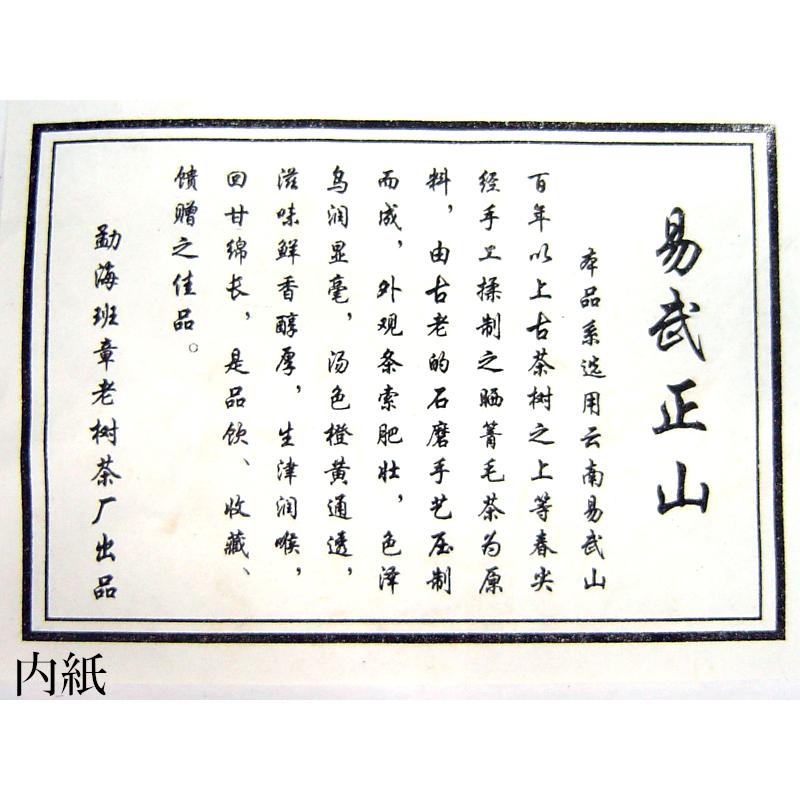 易武正山
本品系选用云南易武山
百年以上古茶树之上等春尖
经手工揉制之晒菁毛茶为原
料，由古老的石磨手艺压制
而成，外观条索肥壮，色泽
乌润显毫，汤色橙黄通透，
滋味鲜香醇厚，生津润喉，
回甘绵长，是品饮、收藏、
馈赠之佳品。
勐海班章老树茶厂出品
内紙